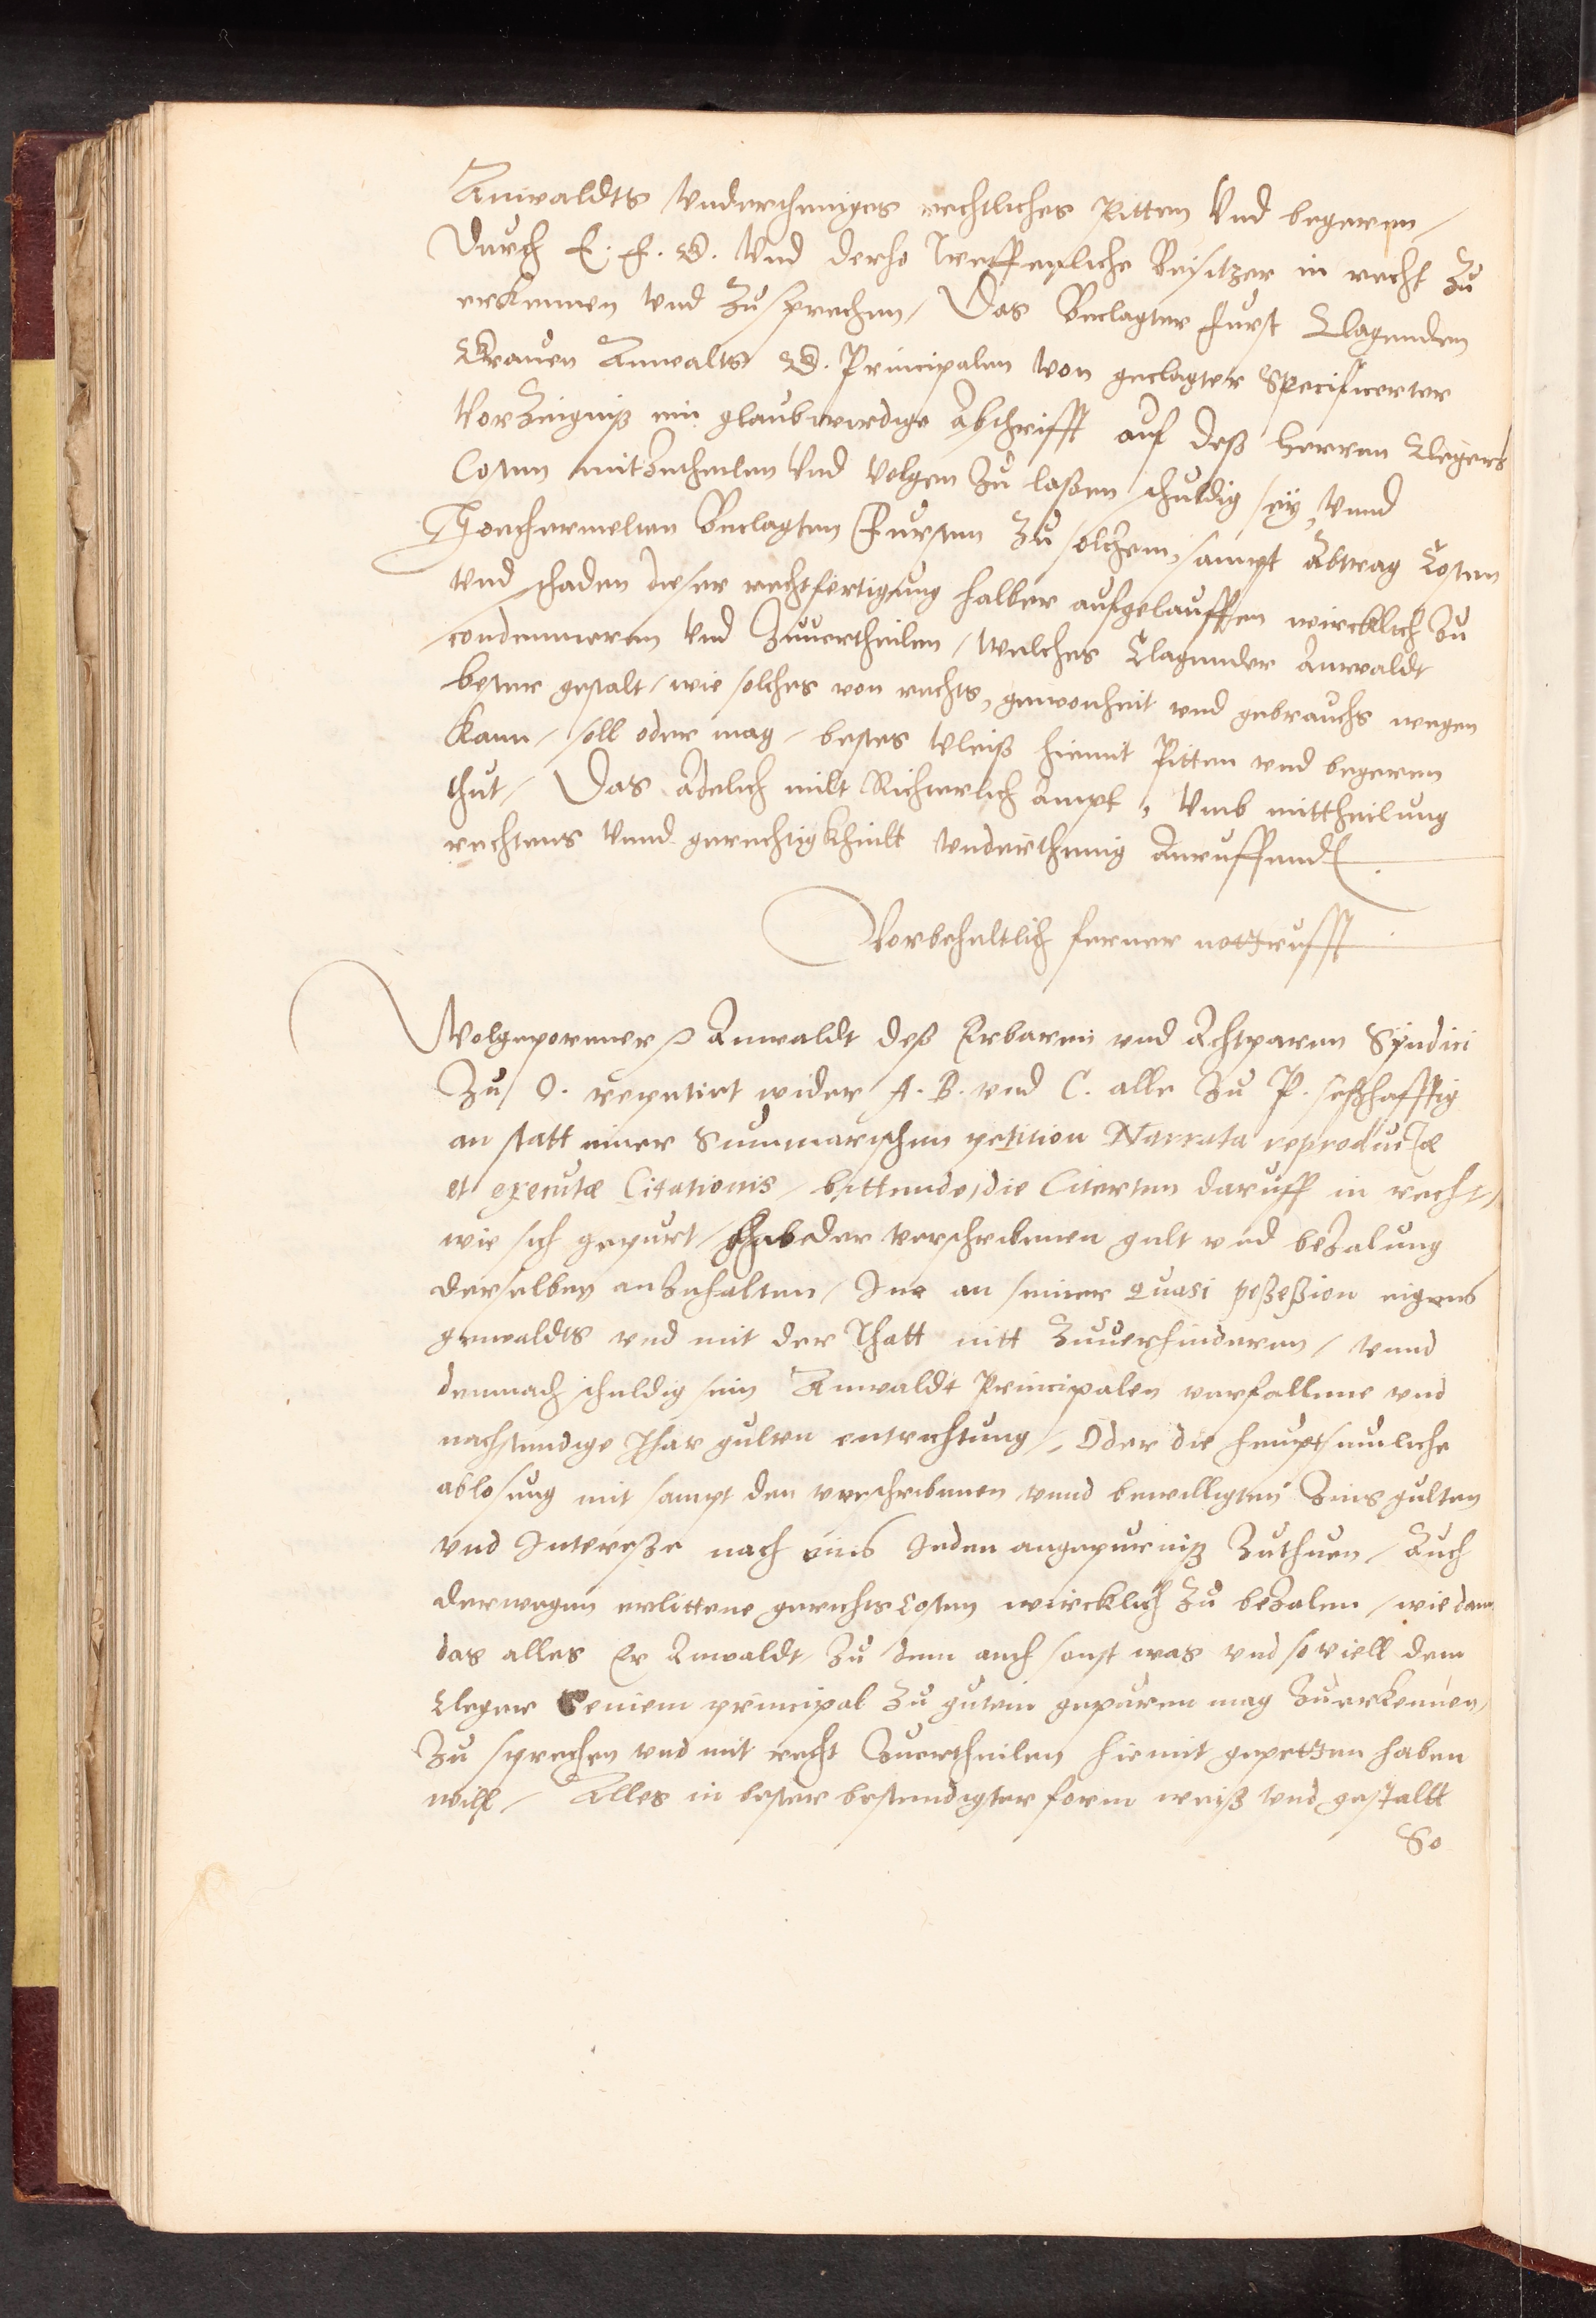 Anwaldts Undertheniges rechtliches Pitten Vnd begeren /
Durch E. F. G. Vnd derho Treffenliche Beisitzer in recht Zu
erkennen Vnd Zusprechen / Das Beclagter Furst Clagenden
Grauen Anwalts G. Principalen Von geclagter Specificerter
VerZeigniß ein glaubwirdige Abschrifft auf deß Herren Clegers
Costen mitZutheilen Vnd Volgen Zu laßen schuldig sey, Vnnd
Hochermelten Beclagten Fursten Zu solchem, sampt Abtrag Costen
Vnd schaden dieser rechtfertigung halber aufgelauffen wircklich Zu
condemneren Vnd Zuuertheilen / Welches Clagender Anwaldt
bester gestalt / wie solches von rechts, gewonheit vnd gebrauchs wegen
kann / soll oder mag / bestes Vleiß hiemit Pitten vnd begeren
thut / Das Adelich milt Richterlich Ampt, Vmb mittheilung
rechtens Vnnd gerechtigkheitt Vnderthenig Anruffend
Vorbehaltlich ferner notturfft
Wolgeporner Anwaldt deß Erbaren vnd Achtparen Syndici
Zu O. repetirt wider A. B. vnd C. alle Zu P. seßhafftig
an statt einer Summarischen petition Narrata reproductæ
et executæ Citationis / bittende, die Citerten daruff in recht,
wie sich gepurt / der verschribenen gult vnd beZalung
derselben anZuhalten / Ine an seiner quasi poßeßion eigens
gewaldts vnd mit der Thatt nitt Zuuerhinderen / vnnd
demnach schuldig sein Anwaldt Principalen verfallene vnd
nachstendige Jhar gulten entrichtung /, Oder die heuptsumliche
ablosung mit sampt den verschribenen vnnd bewilligten Zinsgulten
vnd Intereße nach eins Jeden angepurniß Zuthuen / Auch
derwegen erlittene gerichts Costen wircklich Zu beZalen / wie dann
das alles Er Anwaldt Zu dem auch sonst was vnd so viell dem
Cleger Seinem principal Zu gutem gepuren mag Zuerkennen,
Zu sprechen vnd mit recht Zuertheilen hiemit gepetten haben
will / Alles in bester bestendigster form weiß Vnd gestaltt
So